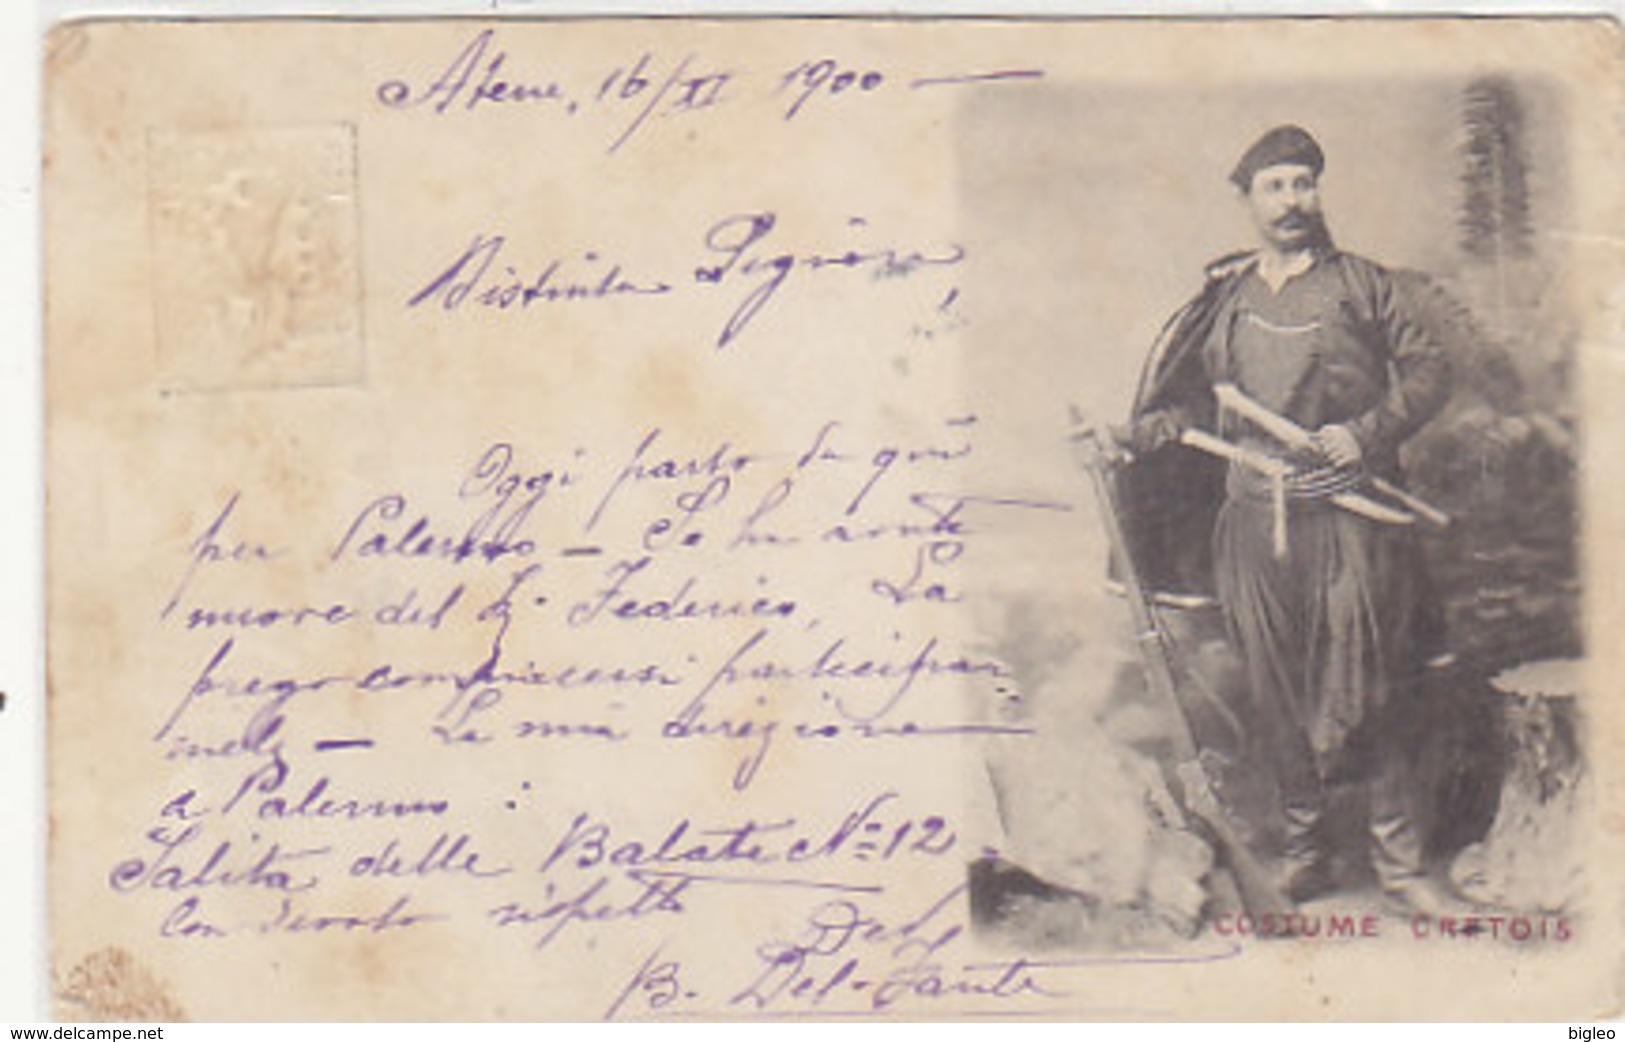 Atene, 16/XI 1900 —
Distinta Signora,
Oggi parto da qui
per Palermo — Se ha avute
nuove del Sg. Federico, La
prego compiacersi participar
mele — La mia direzione
a Palermo :
Salita delle Balate N= 12 -
Con devoto rispetto
Del
B. Del-Fante
COSTUME CRETOIS
www.delcampe.net
bigleo